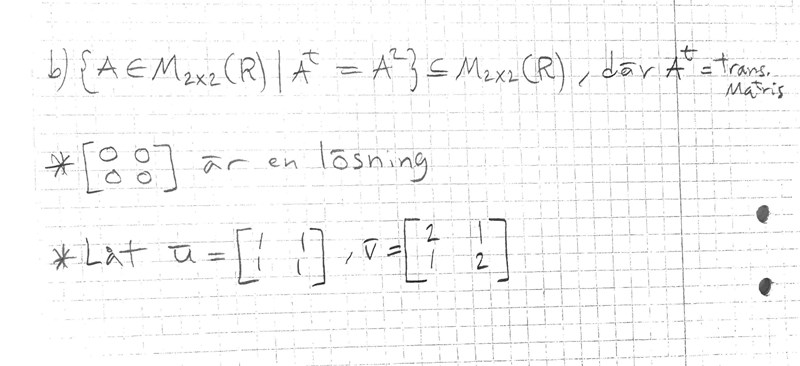 b) {A ∈ M₂ₓ₂(R) | Aᵗ = A²} ⊆ M₂ₓ₂(R), där Aᵗ = trans. Matris
* [0 0; 0 0] är en lösning
* Låt ū = [1 1; 1 1], v̄ = [2 1; 1 2]